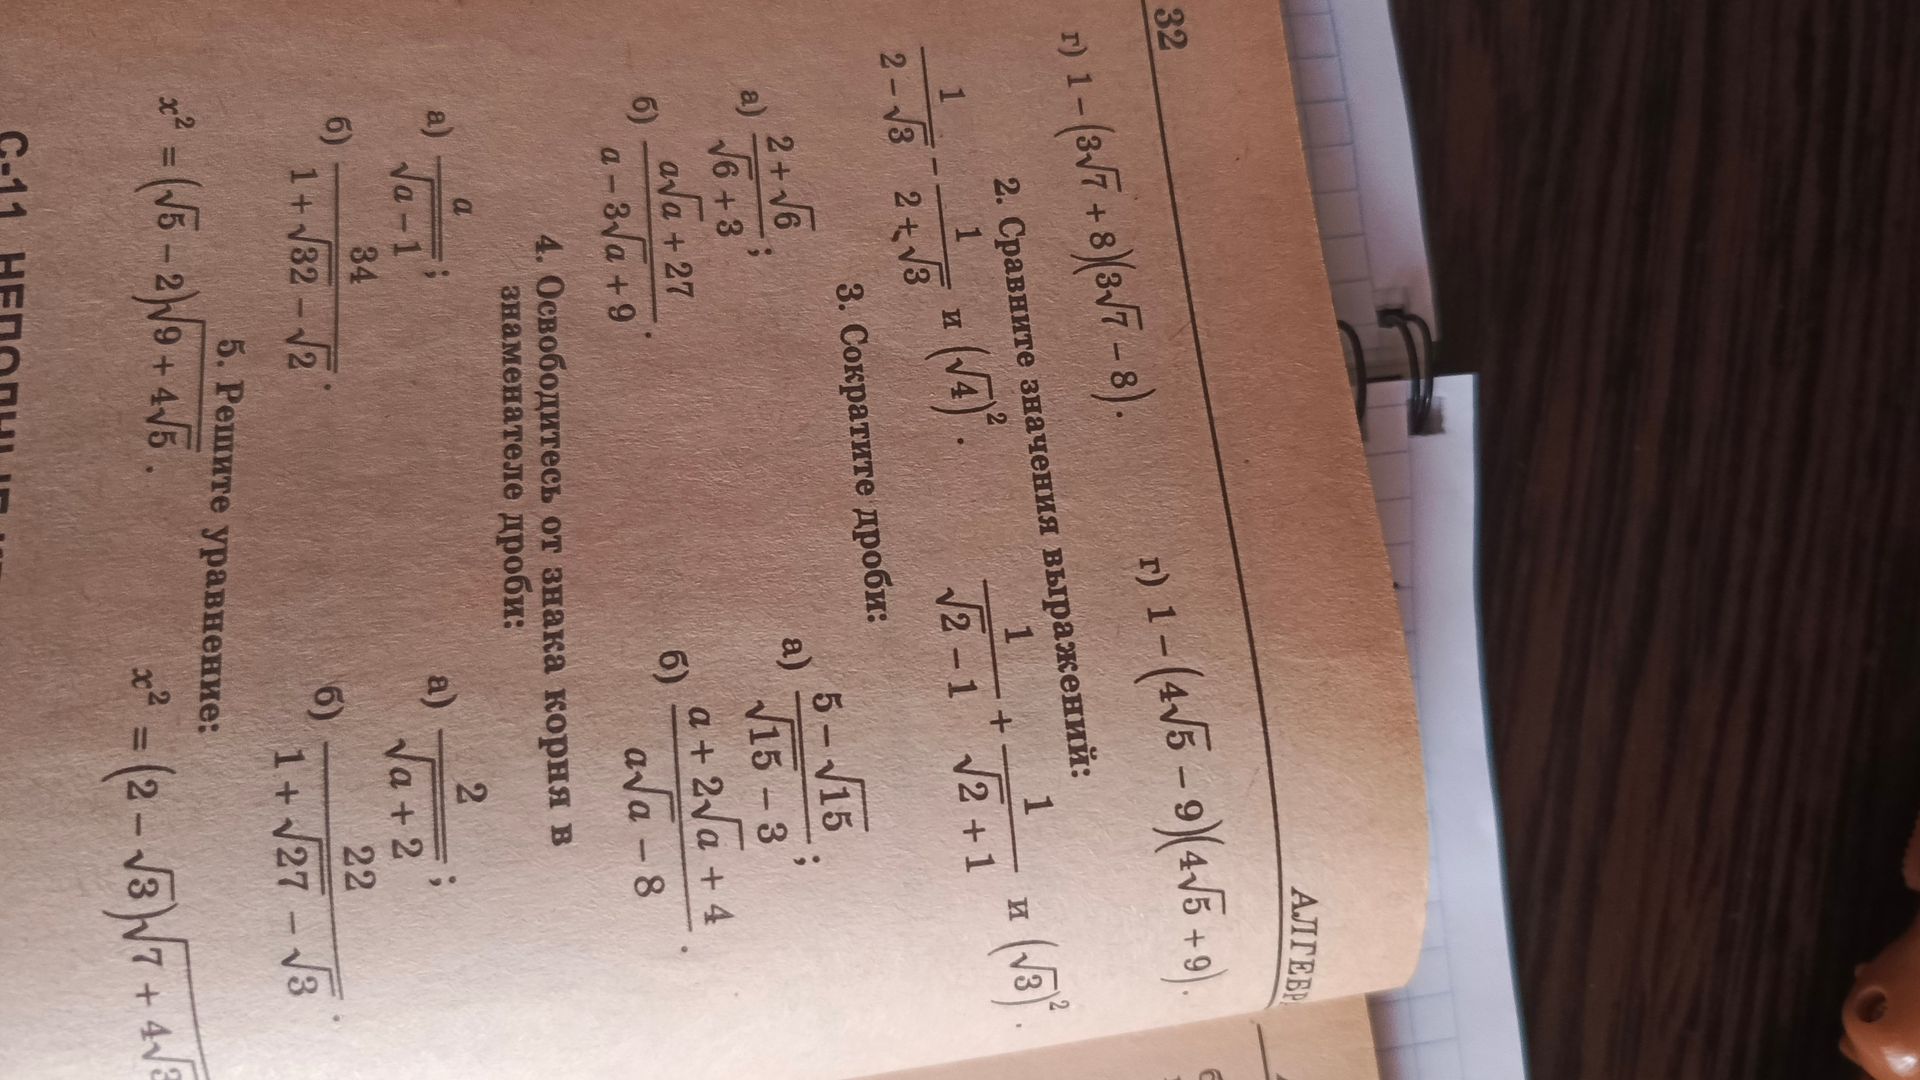 32 АЛГЕБР
г) 1 − (3√7 + 8)(3√7 − 8). г) 1 − (4√5 − 9)(4√5 + 9).
2. Сравните значения выражений:
1/(2 − √3) − 1/(2 + √3) и (√4)². 1/(√2 − 1) + 1/(√2 + 1) и (√3)².
3. Сократите дроби:
а) (2 + √6)/(√6 + 3); а) (5 − √15)/(√15 − 3);
б) (a√a + 27)/(a − 3√a + 9). б) (a + 2√a + 4)/(a√a − 8).
4. Освободитесь от знака корня в
знаменателе дроби:
а) a/(√a − 1); а) 2/(√a + 2);
б) 34/(1 + √32 − √2). б) 22/(1 + √27 − √3).
5. Решите уравнение:
x² = (√5 − 2)√(9 + 4√5). x² = (2 − √3)√(7 + 4√3
С-11